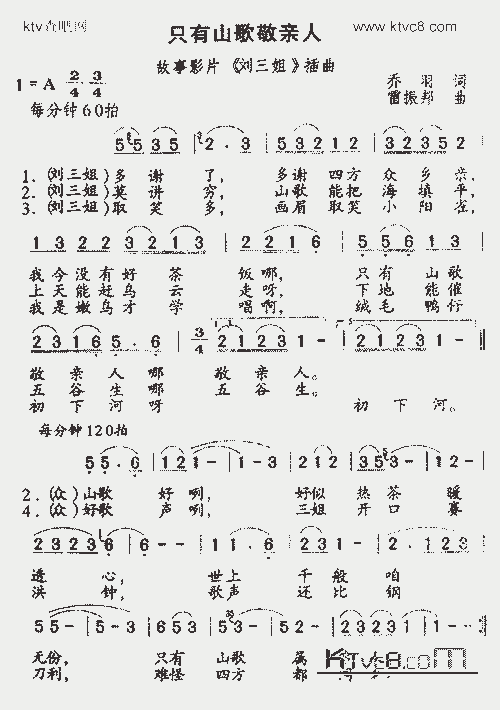 ktv酷吧网
www.ktvc8.com
只有山歌敬亲人
故事影片《刘三姐》插曲
1=A 2/4 3/4
乔羽 词
雷振邦 曲
每分钟60拍
5 5 3 5 2·3 5 3 2 1 2 3 2 3 5 2
1.(刘三姐)多谢了,多谢四方众乡亲,
2.(刘三姐)莫讲穷,山歌能把海填平,
3.(刘三姐)取笑多,画眉取笑小阳雀,
1 3 2 2 3 2 1 3 2 2 1 6 5 5 6 1 3
我今没有好茶饭哪,只有山歌
上天能赶乌云走呀,下地能催
我是嫩鸟才学唱啊,绒毛鸭仔
2 3 1 2 1 6 5·6 3/4 2 1 2 3 1 - 2 1 2 3 1 -
敬亲人哪敬亲人。
五谷生哪五谷生。
初下河呀初下河。
每分钟120拍
5 5·6 1 2 1 - 1 - 3 2 1 2 3 5 3 - 1 2 -
2.(众)山歌好咧,好似热茶暖
4.(众)好歌声咧,三姐开口赛
2 3 2 3 6 6 - - 1 1·6 2 3 1 - 2·1 2 3
透心,世上千般咱
洪钟,歌声还比钢
5 5 - 5 - 3 1 6 5 3 5·3 5 5 2 - 1 2 3 2 1 1 -
无份,只有山歌属
刀利,难怪四方都
KTvc8.com